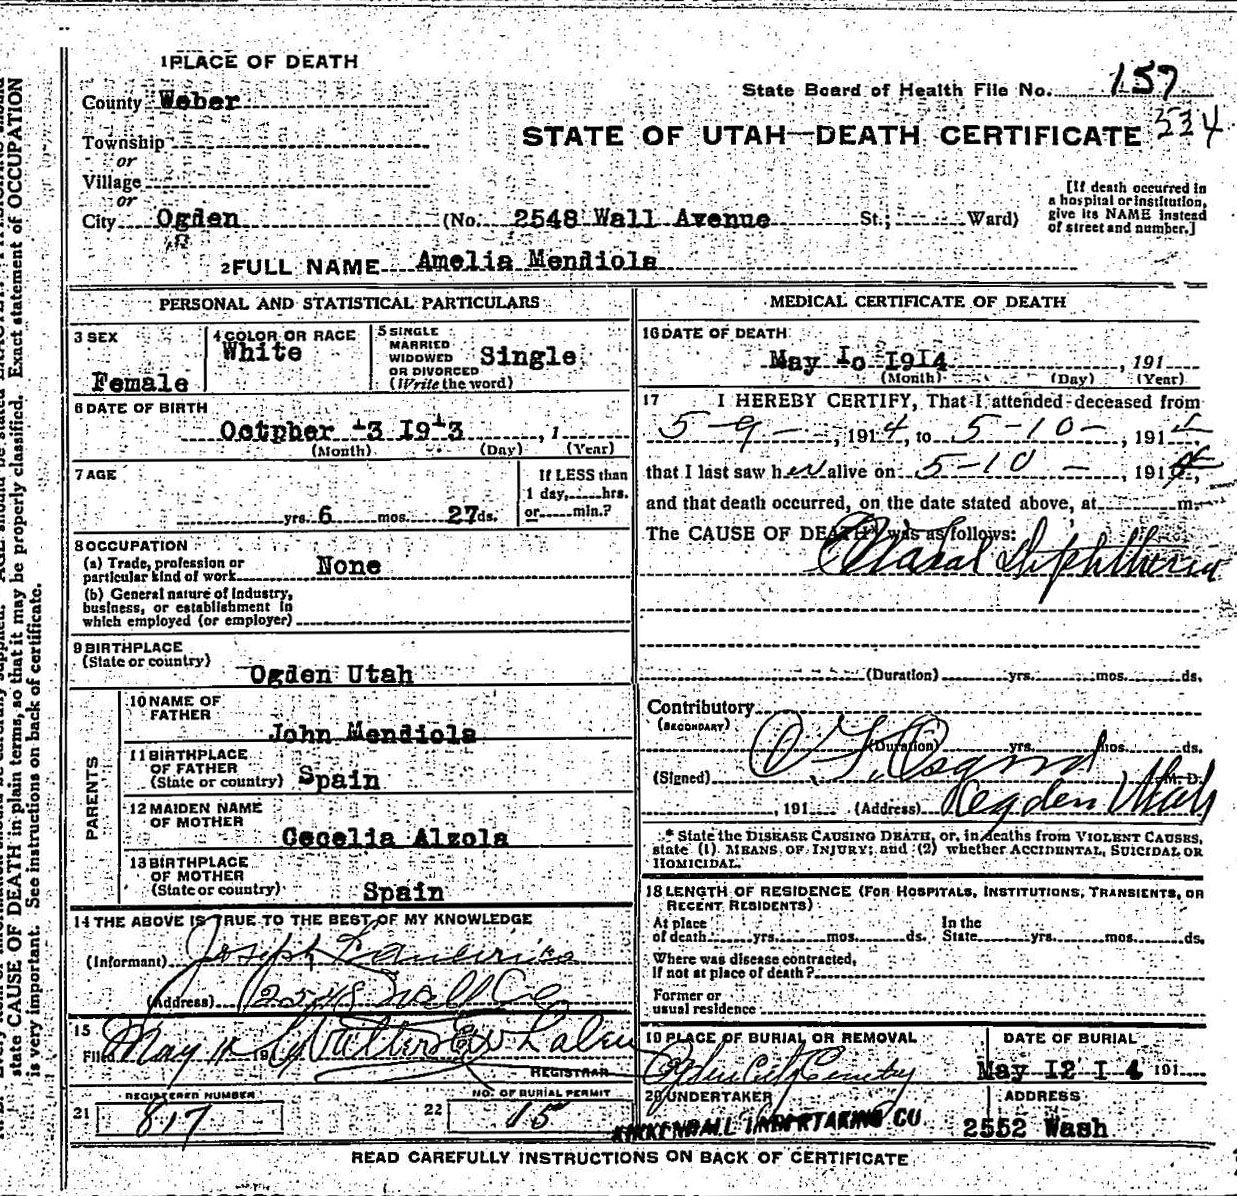 1 PLACE OF DEATH
County Weber
State Board of Health File No. 157
534
Township
or
Village
or
City Ogden (No. 2548 Wall Avenue St.; Ward)
STATE OF UTAH—DEATH CERTIFICATE
[If death occurred in
a hospital or institution,
give its NAME instead
of street and number.]
2 FULL NAME Amelia Mendiola
PERSONAL AND STATISTICAL PARTICULARS
3 SEX
Female
4 COLOR OR RACE
White
5 SINGLE
MARRIED
WIDOWED
OR DIVORCED
(Write the word)
Single
6 DATE OF BIRTH
Octpher 13 1913, 1
(Month) (Day) (Year)
7 AGE
yrs. 6 mos. 27 ds.
If LESS than
1 day, hrs.
or min.?
8 OCCUPATION
(a) Trade, profession or
particular kind of work None
(b) General nature of industry,
business, or establishment in
which employed (or employer)
9 BIRTHPLACE
(State or country)
Ogden Utah
PARENTS
10 NAME OF
FATHER
John Mendiola
11 BIRTHPLACE
OF FATHER
(State or country) Spain
12 MAIDEN NAME
OF MOTHER
Cecelia Alzola
13 BIRTHPLACE
OF MOTHER
(State or country)
Spain
14 THE ABOVE IS TRUE TO THE BEST OF MY KNOWLEDGE
(Informant) Joseph
(Address) 2548 Wall
15
Filed May 11 191
REGISTRAR
REGISTERED NUMBER
21 817
NO. OF BURIAL PERMIT
22 15
MEDICAL CERTIFICATE OF DEATH
16 DATE OF DEATH
May Io I9I4, 191
(Month) (Day) (Year)
17 I HEREBY CERTIFY, That I attended deceased from
5-9-, 1914, to 5-10-, 191
that I last saw her alive on 5-10-, 1914,
and that death occurred, on the date stated above, at m.
The CAUSE OF DEATH* was as follows:
Nasal Diphtheria
(Duration) yrs. mos. ds.
Contributory
(SECONDARY)
(Duration) yrs. mos. ds.
(Signed) Osgood, M. D.
, 191 (Address) Ogden Utah
* State the DISEASE CAUSING DEATH, or, in deaths from VIOLENT CAUSES,
state (1) MEANS OF INJURY; and (2) whether ACCIDENTAL, SUICIDAL OR
HOMICIDAL.
18 LENGTH OF RESIDENCE (FOR HOSPITALS, INSTITUTIONS, TRANSIENTS, OR
RECENT RESIDENTS)
At place
of death yrs. mos. ds.
In the
State yrs. mos. ds.
Where was disease contracted,
If not at place of death?
Former or
usual residence
19 PLACE OF BURIAL OR REMOVAL
Ogden City Cemetery
DATE OF BURIAL
May I2 I 4 191
20 UNDERTAKER
KIRKENDALL UNDERTAKING CO
ADDRESS
2552 Wash
READ CAREFULLY INSTRUCTIONS ON BACK OF CERTIFICATE
state CAUSE OF DEATH in plain terms, so that it may be properly classified. Exact statement of OCCUPATION
is very important. See instructions on back of certificate.